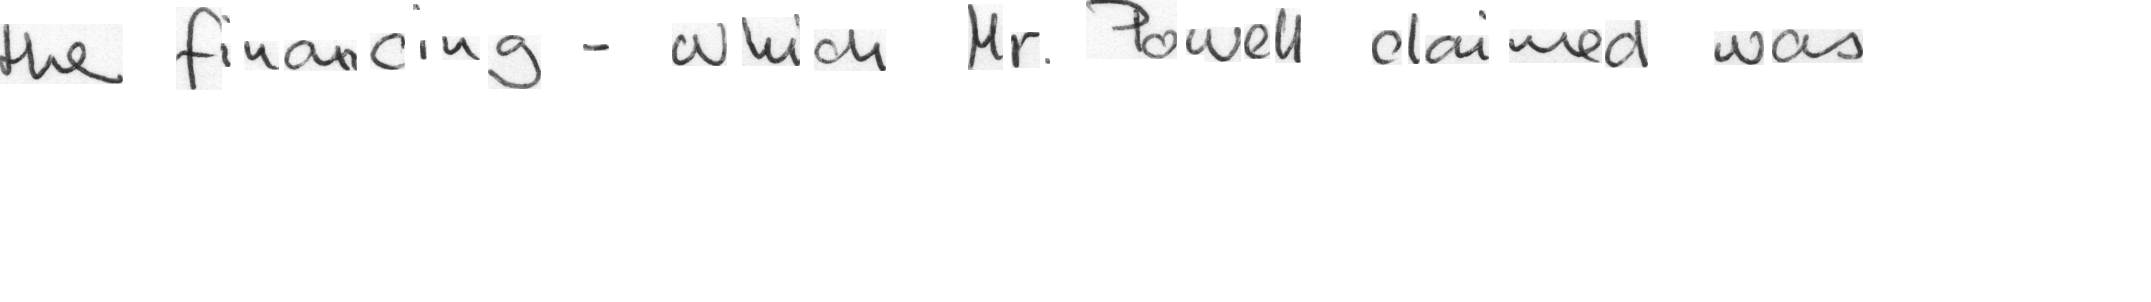 the financing - which Mr. Powell claimed was